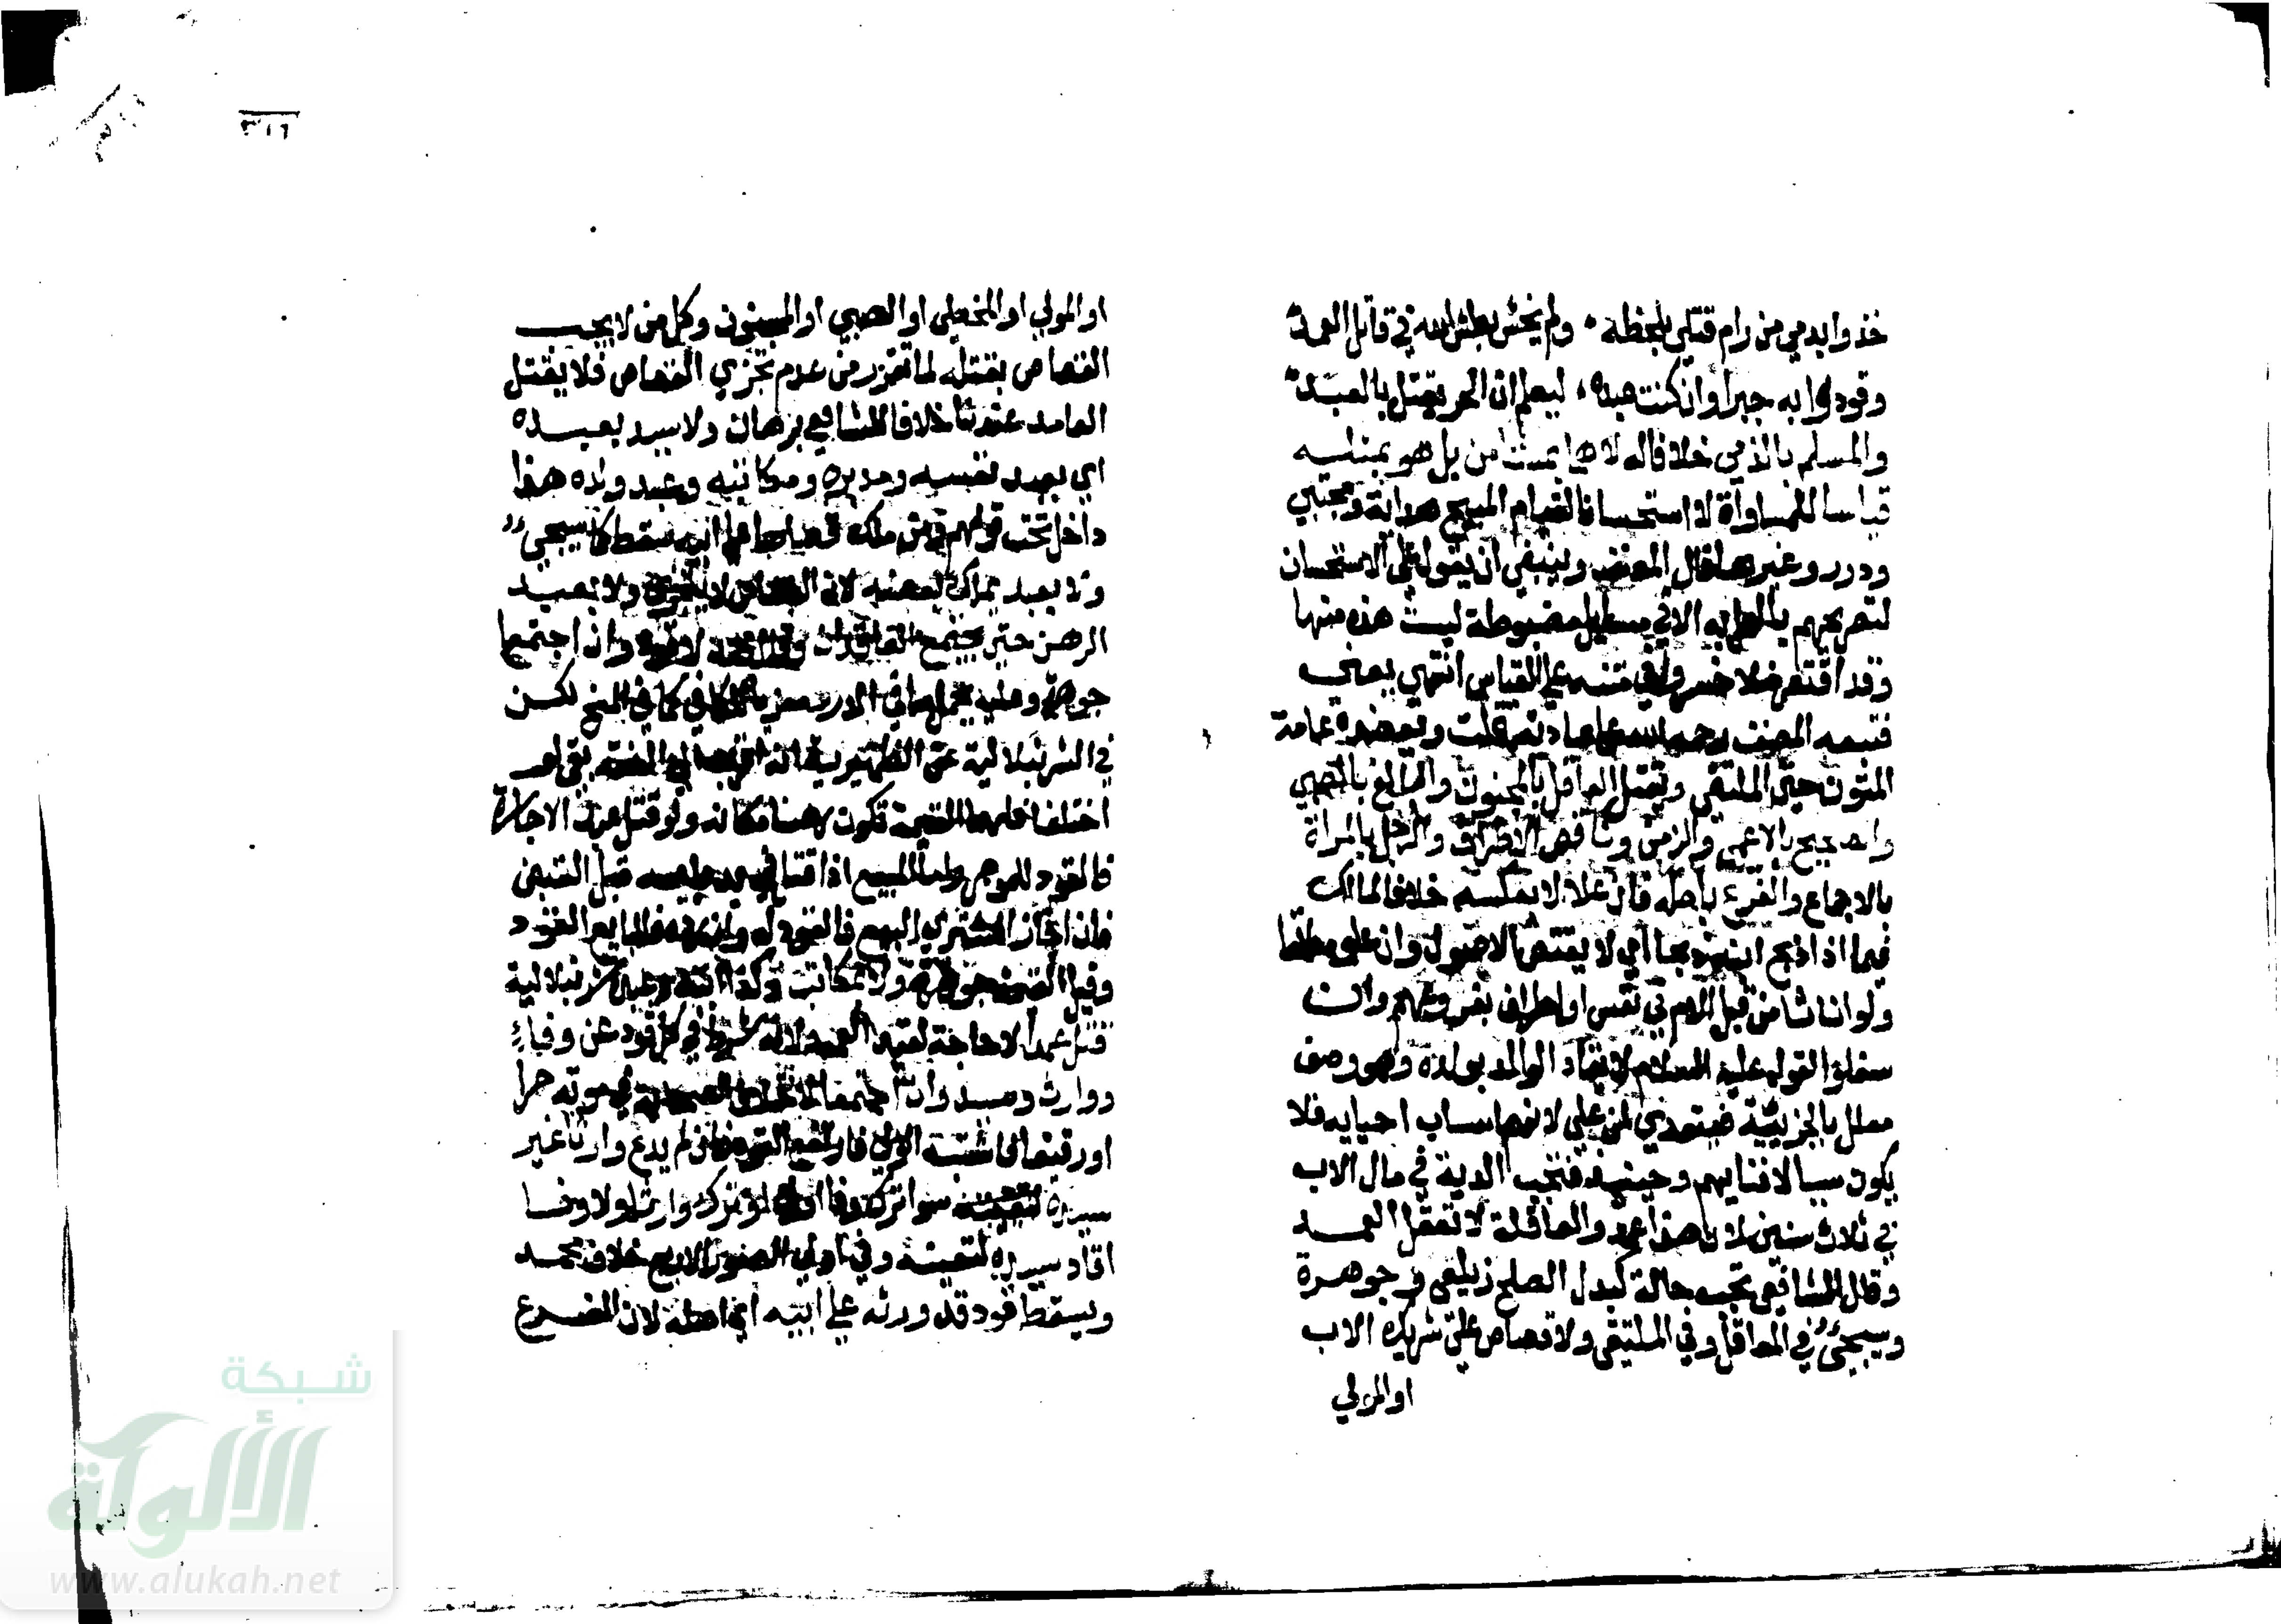 خذوا بدمي من رام قتلي بلحظه ولم يخش بطش الله في قاتل العمد
وقودوا به جبرا وان كنت عبده ليعلم ان الحر يقتل بالعبد
والمسلم بالذمي خلافا له لا هما بمستامن بل هو بمثليه
قياسا للمساواة لا استحسانا لقيام المبيح هداية ومجتبي
ودرر وغيرها قال المصنف وينبغي ان يعول على الاستحسان
لتصريحهم بالعمل به الا في مسايل مضبوطة ليست هذه منها
وقد اقتصر منلا خسرو في متنه على القياس انتهي يعني
فتبعه المصنف رحمه الله على عادته قلت ويعضده عامة
المتون حتى الملتقي ويقتل العاقل بالمجنون والبالغ بالصبي
والصحيح بالاعمي والزمن وناقص الاطراف والرجل بالمراة
بالاجماع والفرع باصله وان علا لا بعكسه خلافا لمالك
فيما اذا ذبح ابنه ذبحا اي لا يقتص الاصول وان علو مطلقا
ولو اناثا من قبل الام في نفس او اطراف بفروعهم وان
سفلوا لقوله عليه السلام لا يقاد الوالد بولده وهو وصف
معلل بالجزئية فيتعدي لمن علي لانهم اسباب احيايه فلا
يكون سببا لافنايهم وحينيذ فتجب الدية في مال الاب
في ثلاث سنين لان هذا عمد والعاقلة لا تعقل العمد
وقال الشافعي تجب حالة كبدل الصلح زيلعي وجوهرة
وسيجيء في المعاقل وفي الملتقي ولا قصاص على شريك الاب
او المولي
او المولي او المخطي او الصبي او المجنون وكل من لا يجب
القصاص بقتله لما تقرر من عدم تجزي القصاص فلا يقتل
العامد عندنا خلافا للشافعي برهان ولا سيد بعبده
اي بعبد نفسه ومدبره ومكاتبه وعبد ولده هذا
داخل تحت قولهم ومن ملك قصاصا على ابيه سقط كما سيجيء
ولا بعبد يملك بعضه لان القصاص لا يتجزي ولا بعبد
الرهن حتى يجتمع العاقدان وقال محمد لا قود وان اجتمعا
جوهرة وعليه يحمل ما في الدرر معزيا للكافي كما في المنح لكن
في الشرنبلالية عن الظهيرية انه اقرب الي الفقه بقي لو
اختلفا فلهما القيمة تكون رهنا مكانه ولو قتل عبد الاجارة
فالقود للموجر واما المبيع اذا قتل في يد بايعه قبل القبض
فان اجاز المشتري البيع فالقود له وان رده فللبايع القود
وقيل القيمة جوهرة ولا بمكاتب وكذا ابنه وعبده شرنبلالية
قتل عمدا لا حاجة لقيد العمد لانه شرط في كل قود عن وفاء
ووارث وسيد وان اجتمعا لاختلاف الصحابة في موته حرا
او رقيقا فاشتبه الولي فارتفع القود فان لم يدع وارثا غير
سيده سوا ترك وفا او لم يترك وارثا ولا وفا
اقاد سيده لتعينه وفي اولي الصور الاربع خلاف محمد
ويسقط قود قد ورثه علي ابيه اي اصله لان الفرع
شبكة
الألوكة
www.alukah.net